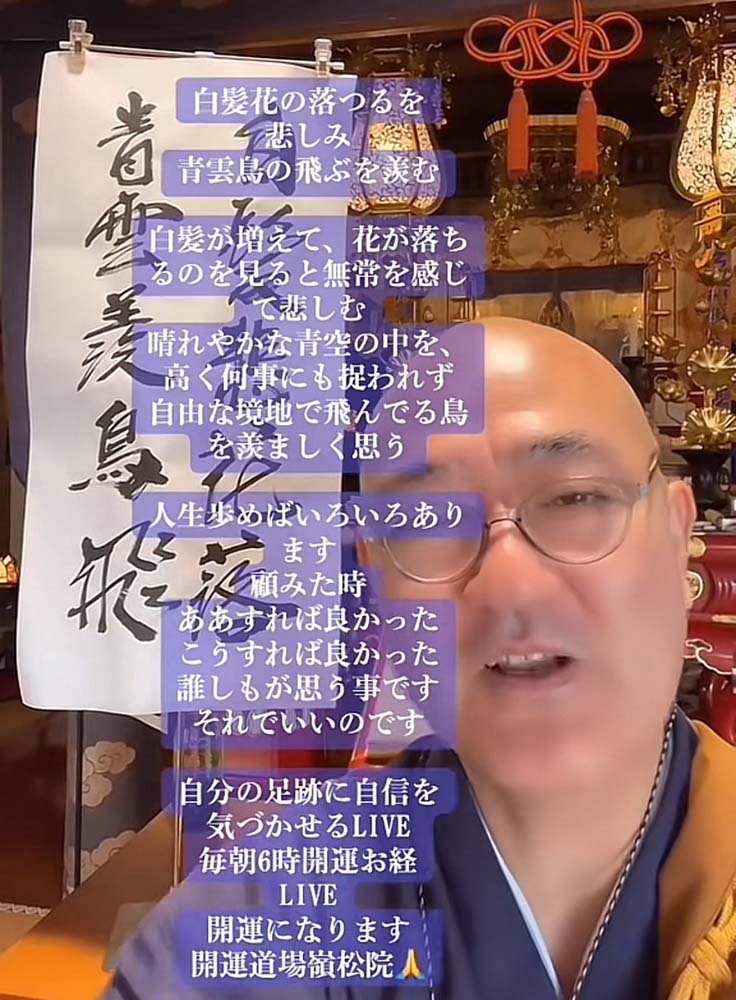 白髪花の落つるを
悲しみ
青雲鳥の飛ぶを羨む
白髪が増えて、花が落ち
るのを見ると無常を感じ
て悲しむ
晴れやかな青空の中を、
高く何事にも捉われず
自由な境地で飛んでる鳥
を羨ましく思う
人生歩めばいろいろあり
ます
顧みた時
ああすれば良かった
こうすれば良かった
誰しもが思う事です
それでいいのです
自分の足跡に自信を
気づかせるLIVE
毎朝6時開運お経
LIVE
開運になります
開運道場嶺松院🙏
白髪悲花落
青雲羨鳥飛